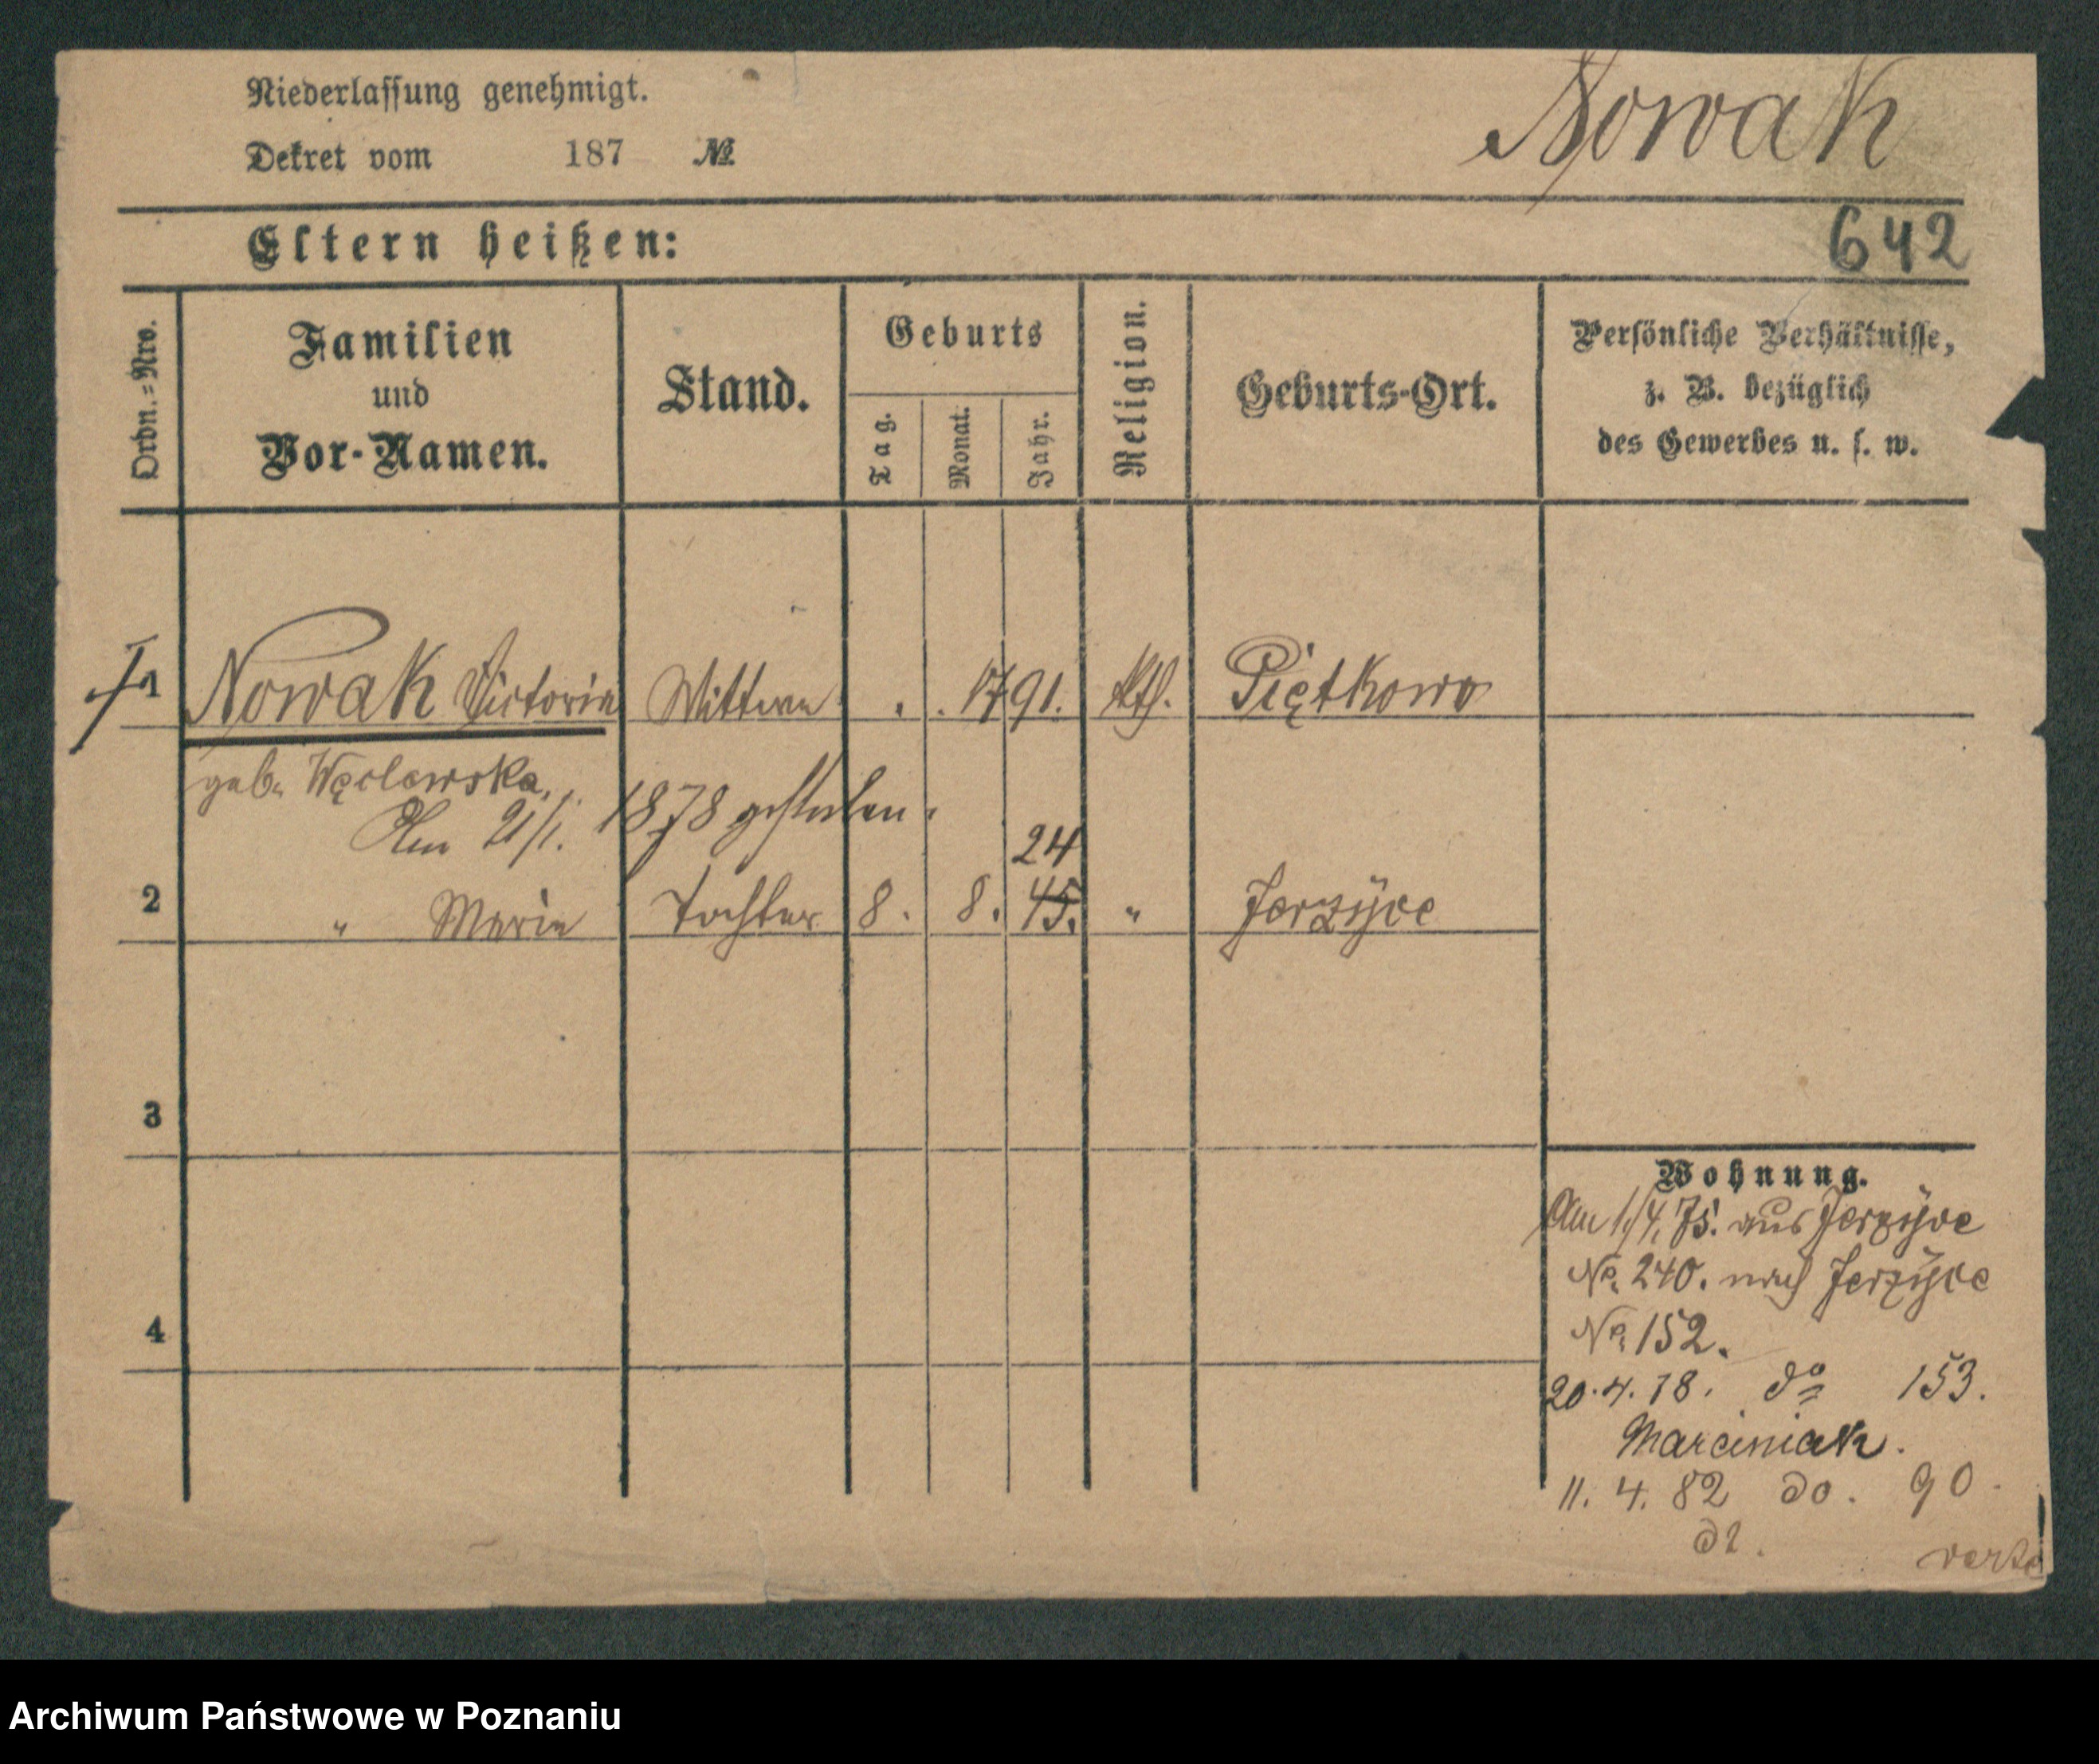 Niederlassung genehmigt.
Nowak
Dekret vom 187 №
Eltern heißen:
642
Ordn.=Nro.
Familien
und
Vor-Namen.
Stand.
Geburts
Tag.
Monat.
Jahr.
Religion.
Geburts-Ort.
Persönliche Verhältnisse,
z. B. bezüglich
des Gewerbes u. s. w.
1 Nowak Victoria Wittwe . . 1791. kth. Piętkowo
geb. Węclewska.
Am 21/1. 1878 gestorben.
24
2 " Marie Tochter 8. 8. 45. " Jerzyce
3
4
Wohnung.
Am 1/4. 75. aus Jerzyce
No. 240. nach Jerzyce
No. 152.
20.4.78. do 153.
Marciniak.
11. 4. 82 do. 90.
verte
Archiwum Państwowe w Poznaniu